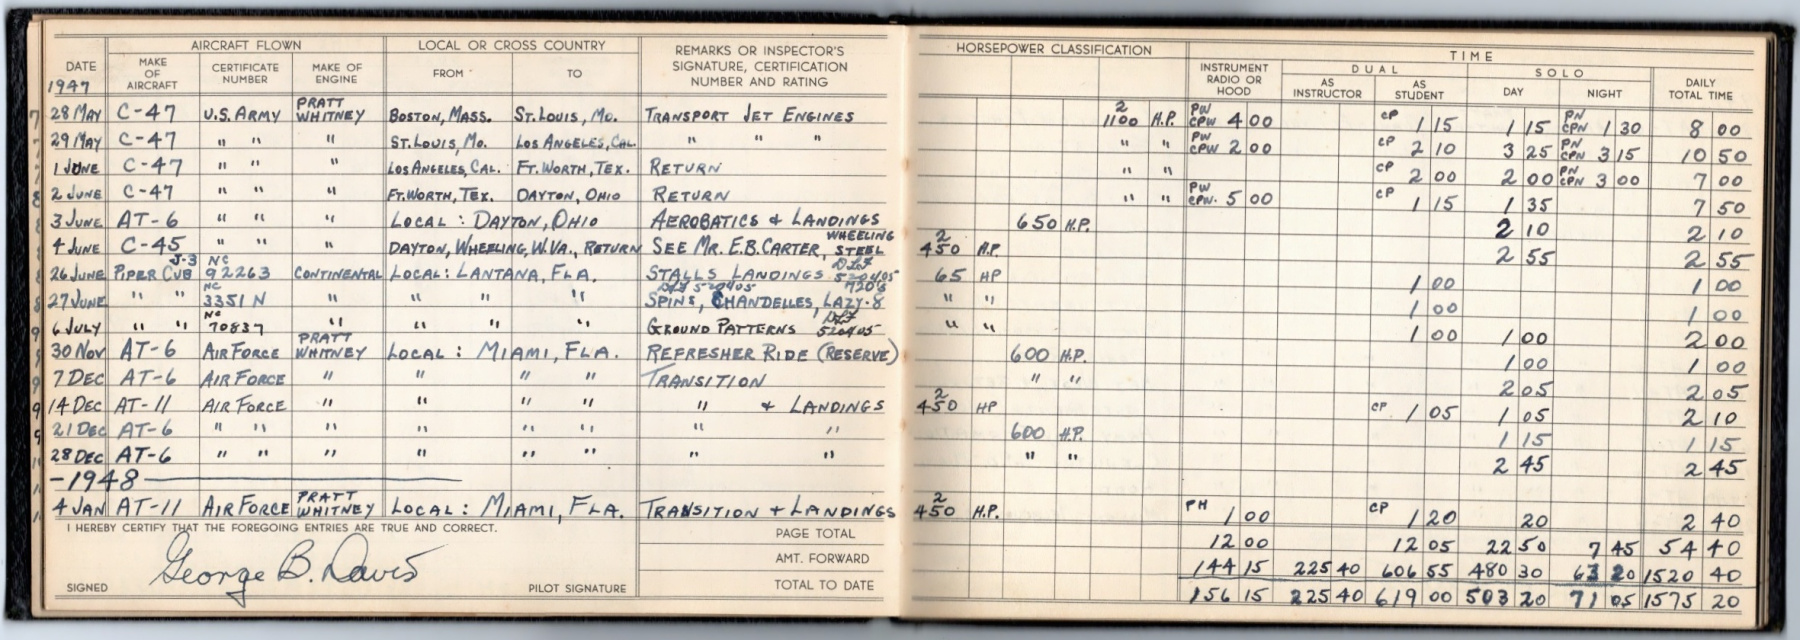 AIRCRAFT FLOWN LOCAL OR CROSS COUNTRY REMARKS OR INSPECTOR'S SIGNATURE, CERTIFICATION NUMBER AND RATING HORSEPOWER CLASSIFICATION TIME
DATE MAKE OF AIRCRAFT CERTIFICATE NUMBER MAKE OF ENGINE FROM TO INSTRUMENT RADIO OR HOOD DUAL AS INSTRUCTOR AS STUDENT SOLO DAY NIGHT DAILY TOTAL TIME
1947
28 MAY C-47 U.S. ARMY PRATT WHITNEY BOSTON, MASS. ST. LOUIS, MO. TRANSPORT JET ENGINES 2 1100 H.P. PW CPW 4 00 CP 1 15 1 15 PN CPN 1 30 8 00
29 MAY C-47 " " " ST. LOUIS, MO. LOS ANGELES, CAL. " " " " " PW CPW 2 00 CP 2 10 3 25 PN CPN 3 15 10 50
1 JUNE C-47 " " " LOS ANGELES, CAL. FT. WORTH, TEX. RETURN " " CP 2 00 2 00 PN CPN 3 00 7 00
2 JUNE C-47 " " " FT. WORTH, TEX. DAYTON, OHIO RETURN " " PW CPW. 5 00 CP 1 15 1 35 7 50
3 JUNE AT-6 " " " LOCAL : DAYTON, OHIO AEROBATICS & LANDINGS 650 H.P. 2 10 2 10
4 JUNE C-45 " " " DAYTON, WHEELING, W.VA., RETURN SEE MR. E.B. CARTER, WHEELING STEEL 2 450 H.P. 2 55 2 55
26 JUNE PIPER CUB J-3 NC 92263 CONTINENTAL LOCAL : LANTANA, FLA. STALLS LANDINGS 720's 520405 65 HP 1 00 1 00
27 JUNE " " NC 3351 N " " " " 520405 SPINS, CHANDELLES, LAZY-8 " " 1 00 1 00
6 JULY " " NC 70837 " " " " GROUND PATTERNS 520405 " " 1 00 1 00 2 00
30 NOV AT-6 AIR FORCE PRATT WHITNEY LOCAL : MIAMI, FLA. REFRESHER RIDE (RESERVE) 600 H.P. 1 00 1 00
7 DEC AT-6 AIR FORCE " " " " TRANSITION " " 2 05 2 05
14 DEC AT-11 AIR FORCE " " " " " & LANDINGS 2 450 HP CP 1 05 1 05 2 10
21 DEC AT-6 " " " " " " " " 600 H.P. 1 15 1 15
28 DEC AT-6 " " " " " " " " " " 2 45 2 45
-1948-
4 JAN AT-11 AIR FORCE PRATT WHITNEY LOCAL : MIAMI, FLA. TRANSITION + LANDINGS 2 450 H.P. PH 1 00 CP 1 20 20 2 40
I HEREBY CERTIFY THAT THE FOREGOING ENTRIES ARE TRUE AND CORRECT.
PAGE TOTAL 12 00 12 05 22 50 7 45 54 40
AMT. FORWARD 144 15 225 40 606 55 480 30 63 20 1520 40
TOTAL TO DATE 156 15 225 40 619 00 503 20 71 05 1575 20
SIGNED George B. Davis PILOT SIGNATURE